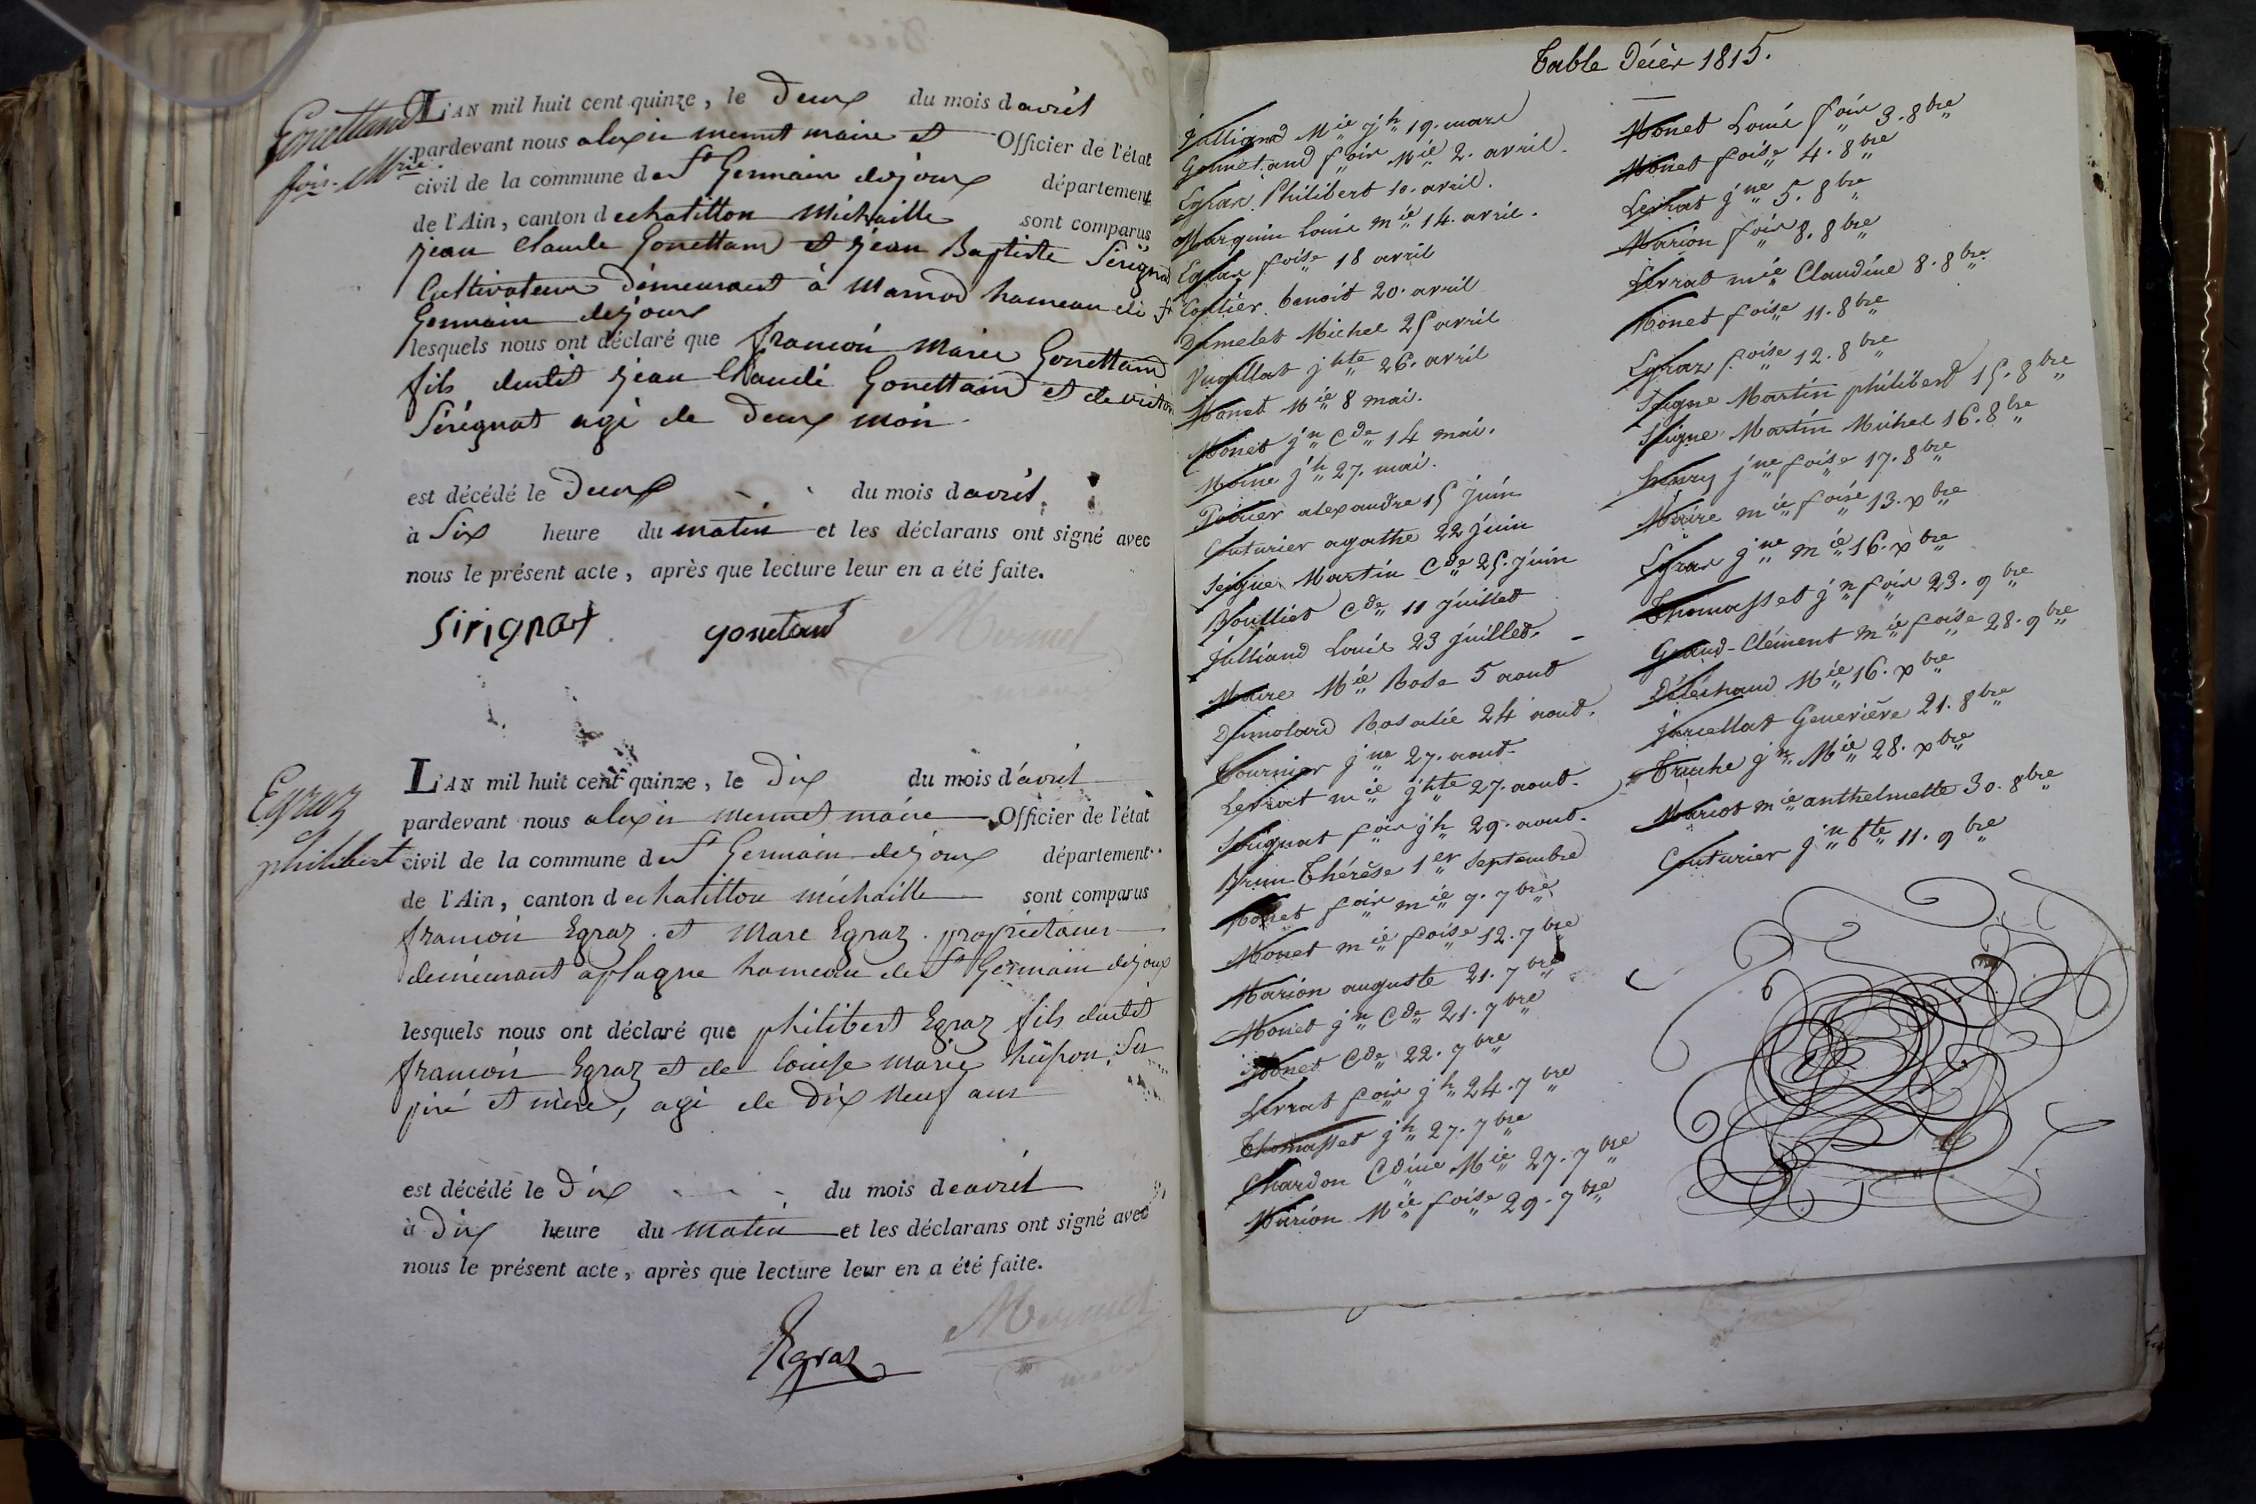 Gonettand
fois. Mrie
L'AN mil huit cent quinze, le Deux du mois d avril
pardevant nous alexis mermet maire et Officier de l'état
civil de la commune de St Germain dejoux département
de l'Ain, canton de chatillon Michaille sont comparus
jean claude Gonettand et jean Baptiste Sérignat
Cultivateurs demeurant à Marnod hameau de St
Germain dejoux
lesquels nous ont déclaré que francois Marie Gonettand
fils dudit jean Claude Gonettand et de
Sérignat agé de Deux mois
est décédé le Deux du mois d avril
à Six heure du matin et les déclarans ont signé avec
nous le présent acte, après que lecture leur en a été faite.
Sirignat gonetand Mermet
maire
Egraz
philibert
L'AN mil huit cent quinze, le Dix du mois d'avril
pardevant nous alexis mermet maire Officier de l'état
civil de la commune de St Germain dejoux département
de l'Ain, canton de chatillon michaille sont comparus
francois Egraz et Marc Egraz propriétaires
demeurant a plagne hameau de St Germain dejoux
lesquels nous ont déclaré que philibert Egraz fils dudit
francois Egraz et de louise marie ses
péré et mère, agé de Dix Neuf ans
est décédé le Dix du mois de avril
à Dix heure du matin et les déclarans ont signé avec
nous le présent acte, après que lecture leur en a été faite.
Egraz Mermet
maire
Table Décès 1815.
Julliand Mie jh 19. mars
Gonnetand fois Mie 2. avril.
Egraz Philibert 10. avril.
Marquin Louis mie 14. avril.
Egraz foise 18 avril
Coutier benoit 20. avril
Dumolet Michel 25 avril
Vuaillat jhte 26. avril
Monet Mie 8 mai.
Monet jn Cde 14 mai.
Moine jh 27. mai.
Poirier alexandre 15 juin
Couturier agathe 22 juin
Seigne Martin Cde 25. juin
Boulliet Cde 11 juillet
Julliand Louis 23 juillet.
Maire Mie Rose 5 aout
Dumolard Rosalie 24 aout.
Tournier jne 27. aout.
Levrat mie jhte 27. aout.
Sérignat fois jh 29. aout.
Brun Thérèse 1er Septembre
Monet fois mie 7. 7bre
Monet mie foise 12. 7bre
Marion auguste 21. 7bre
Monet jn Cde 21. 7bre
Monet Cde 22. 7bre
Levrat fois jh 24. 7bre
Thomasset jh 27. 7bre
Chardon Cdine Mie 27. 7bre
Marion Mie foise 29. 7bre
Monet Louis fois 3. 8bre
Monet foise 4. 8bre
Levrat jne 5. 8bre
Marion fois 8. 8bre
Levrat mie Claudine 8. 8bre
Monet foise 11. 8bre
Egraz foise 12. 8bre
Seigne Martin philibert 15. 8bre
Seigne Martin Michel 16. 8bre
henry jne foise 17. 8bre
Maire mie foise 13. xbre
Egraz jne mie 16. xbre
Thomasset jn fois 23. 9bre
Grand-Clément mie foise 28. 9bre
Déléchaud Mie 16. xbre
Jarcellat Geneviève 21. 8bre
Truche jn Mie 28. xbre
Mariot mie anthelmette 30. 8bre
Couturier jn bte 11. 9bre